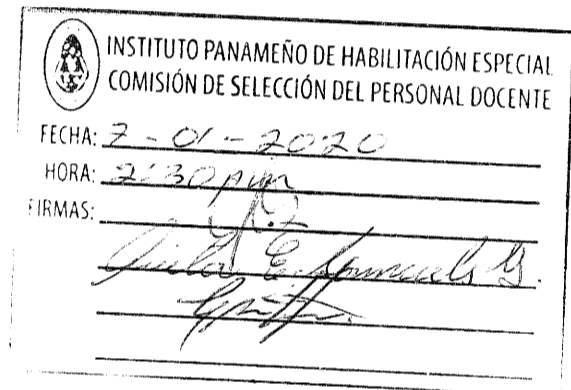 INSTITUTO PANAMEÑO DE HABILITACIÓN ESPECIAL
COMISIÓN DE SELECCIÓN DEL PERSONAL DOCENTE
FECHA: 7-01-2020
HORA: 2:30 pm
FIRMAS:
E.